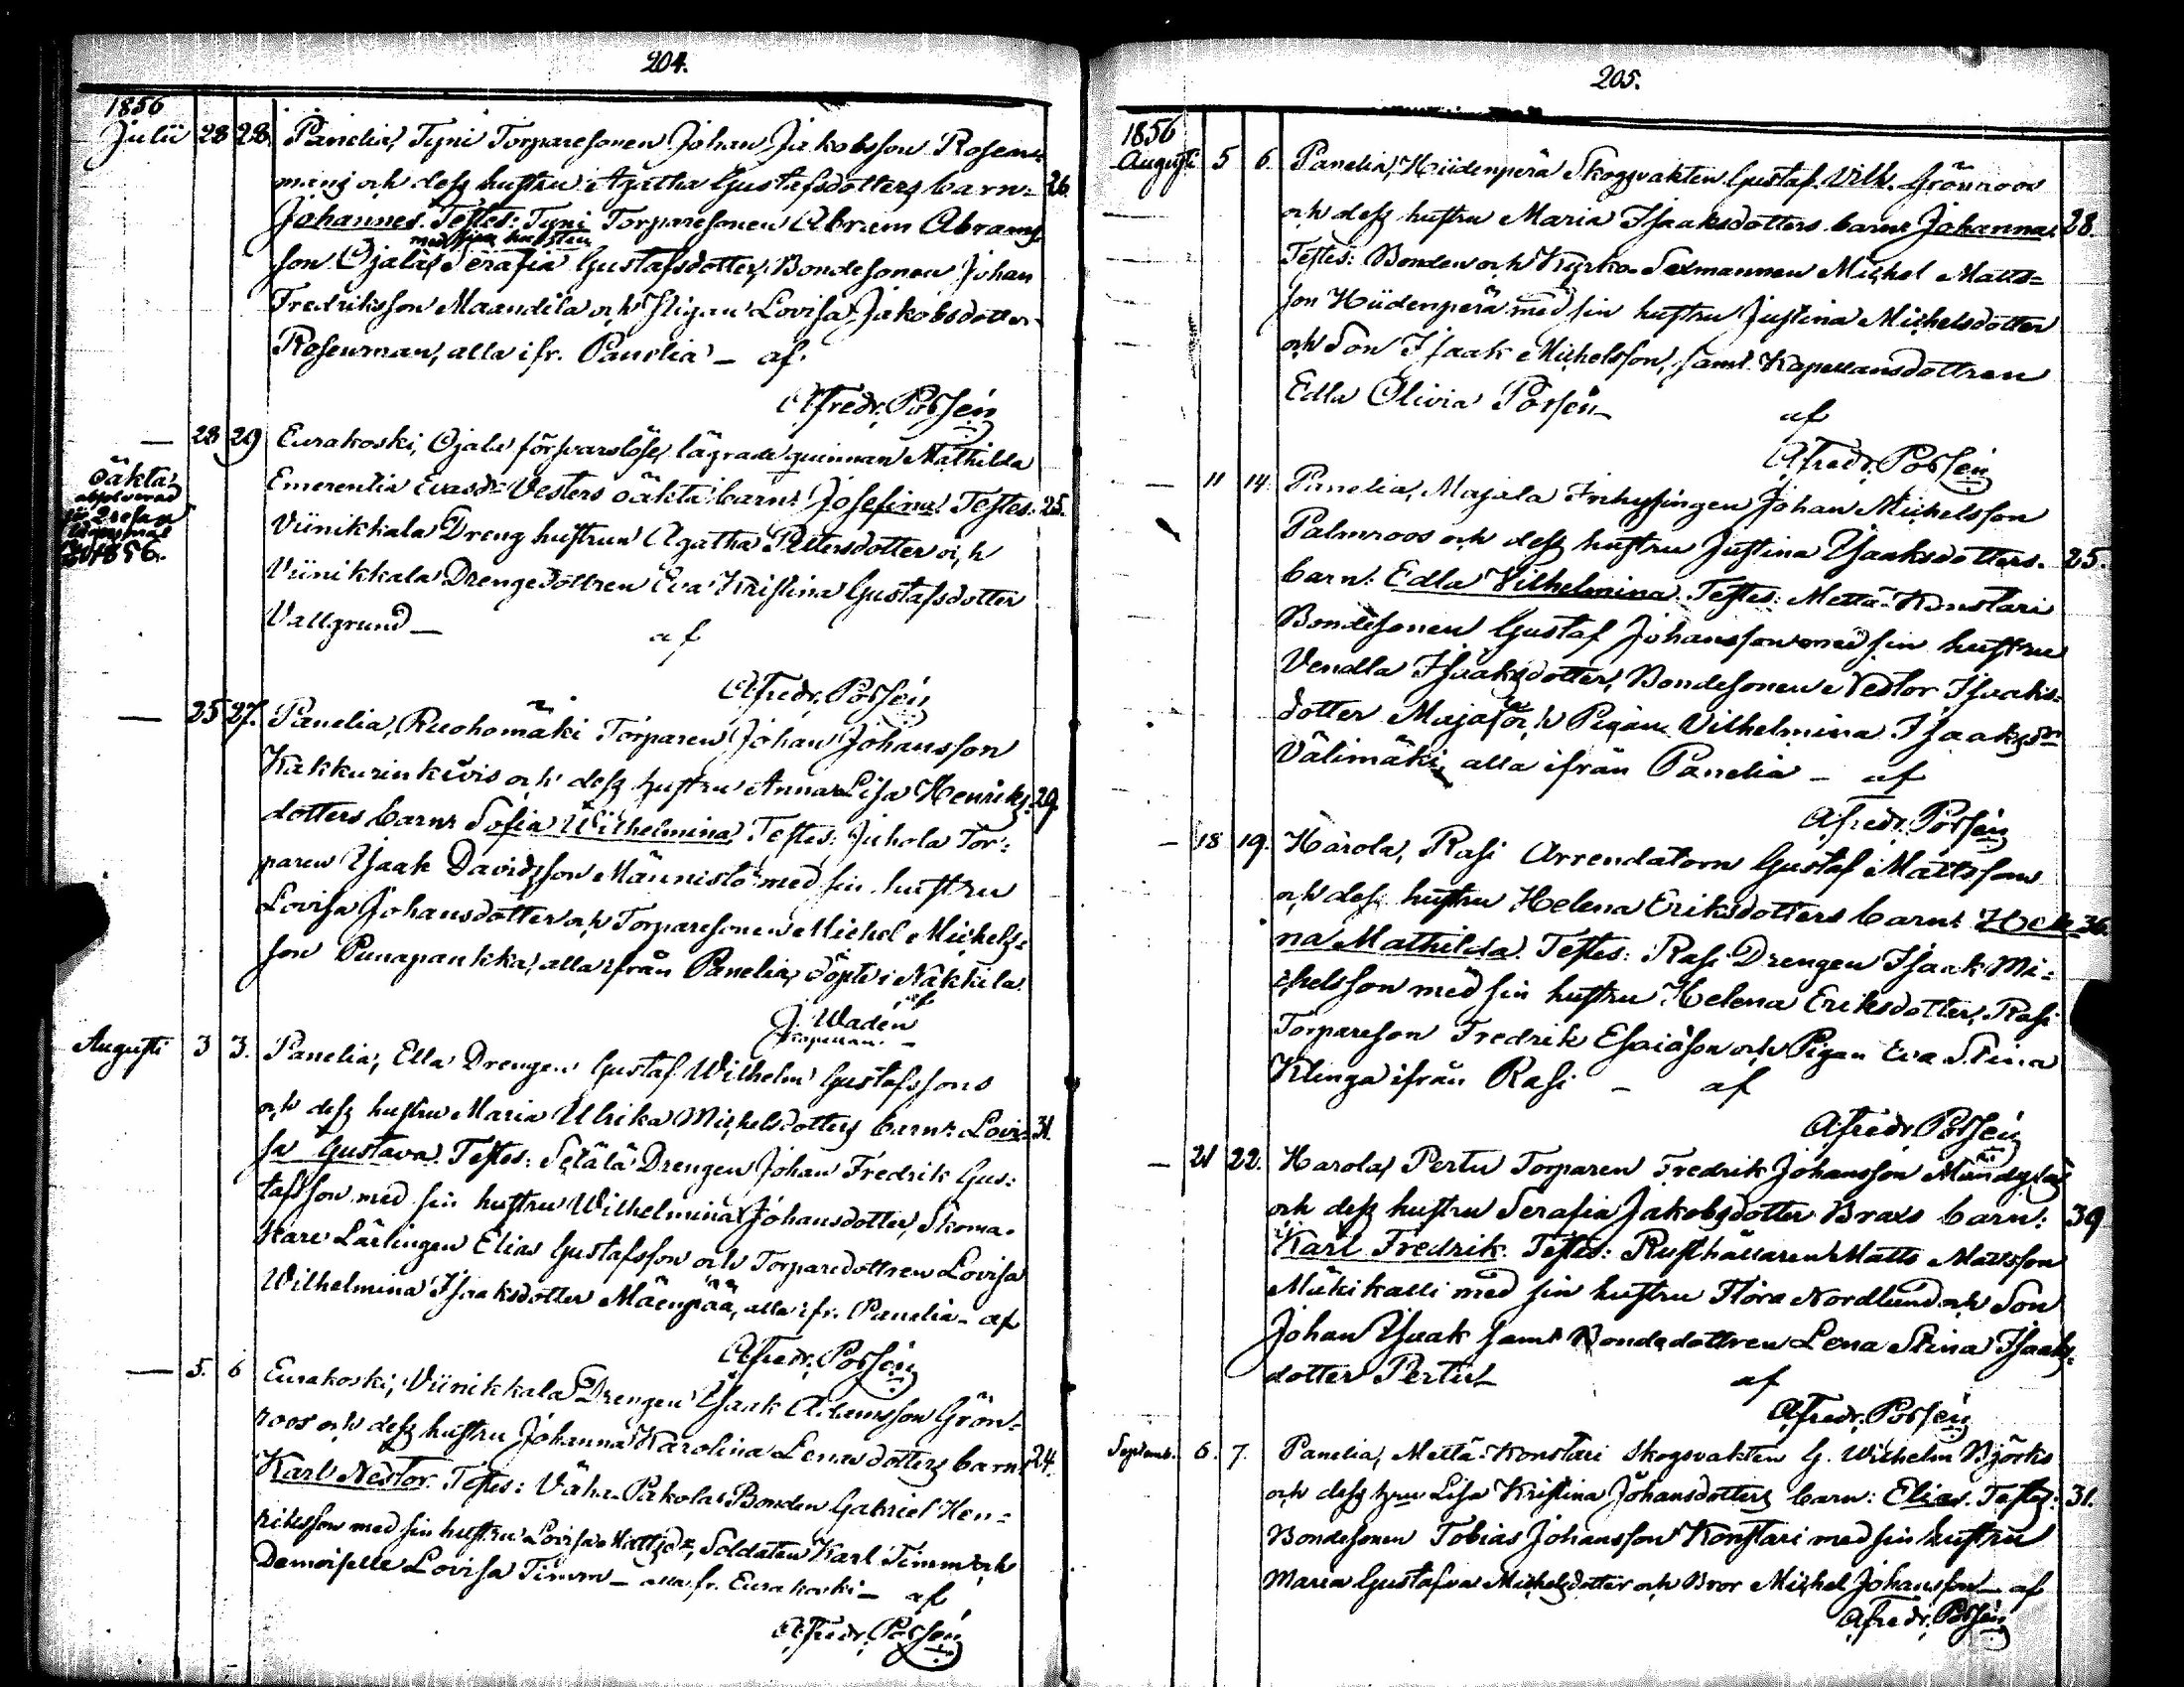 204.
1856
Julii 28 28. Panelia, Tyni Torparesonen Johan Jakobsson Rosen=
mans och dess hustru Agatha Gustafsdotters barn: 26.
Johannes. Testes: Tyni Torparesonen Abram Abrams=
med sin hustru
son Ojala, Serafia Gustafsdotter, Bondesonen Johan
Fredriksson Maandila och Pigan Lovisa Jakobsdotter
Rosenman, alla ifr. Panelia – af
A. Fredr. Porsén
— 28 29 Eurakoski, Ojala försvarslösa lägrade quinnan Mathilda
oäkta
1856.
Emerentia Evasdr Vesters oäkta barn: Josefina. Testes: 25.
Viinikkala Dreng hustrun Agatha Petersdotter och
Viinikkala Drengedottren Eva Kristina Gustafsdotter
Vallgrund — af
A. Fredr. Porsén
— 25 27. Panelia, Ruohomäki Torparen Johan Johansson
Kakkurinkivis och dess hustru Anna Lisa Henriks= 29.
dotters barn: Sofia Wilhelmina. Testes: Juhola Tor=
paren Isaak Davidsson Männistö med sin hustru
Lovisa Johansdotter och Torparesonen Michel Michels=
son Punapankka, alla ifrån Panelia, döpt i Nakkila
af
J. Wadén
Kapellan.
Augusti 3 3. Panelia, Ella Drengen Gustaf Wilhelm Gustafssons
och dess hustru Maria Ulrika Michelsdotters barn: Lovi= 31.
sa Gustava. Testes: Setälä Drengen Johan Fredrik Gus=
tafsson med sin hustru Wilhelmina Johansdotter, Skoma=
kare Lärlingen Elias Gustafsson och Torparedottren Lovisa
Wilhelmina Isaaksdotter Mäenpää, alla ifr. Panelia – af
A. Fredr. Porsén
— 5. 6 Eurakoski, Viinikkala Drengen Isaak Adamsson Grön=
roos och dess hustru Johanna Karolina Lenasdotters barn: 24.
Karl Nestor. Testes: Vähä-Pakola Bonden Gabriel Hen=
riksson med sin hustru Lovisa Mattsdr, Soldaten Karl Timm och
Demoiselle Lovisa Timm – alla fr. Eurakoski – af
A. Fredr. Porsén
205.
1856
Augusti 5 6. Panelia, Hiidenperä Skogsvakten Gustaf Vilh. Grönroos
och dess hustru Maria Isaaksdotters barn: Johanna. 28.
Testes: Bonden och Kyrko-Sexmannen Michel Matts=
son Hiidenperä med sin hustru Justina Michelsdotter
och Son Isaak Michelsson, samt Kapellansdottren
Edla Olivia Porsén – af
A. Fredr. Porsén
— 11 14. Panelia, Majala Inhysingen Johan Michelsson
Palmroos och dess hustru Justina Isaaksdotters 25.
barn: Edla Vilhelmina. Testes: Mettä-Konstari
Bondesonen Gustaf Johansson med sin hustru
Vendla Isaaksdotter, Bondesonen Nestor Isaaks=
dotter Majala och Pigan Vilhelmina Isaaksdr
Välimäki, alla ifrån Panelia – af
A. Fredr. Porsén
— 18 19. Harola, Rasi Arrendatorn Gustaf Mattsson
och dess hustru Helena Eriksdotters barn: 36.
na Mathilda. Testes: Rasi Drengen Isaak Mi=
chelsson med sin hustru Helena Eriksdotter, Rasi
Torpareson Fredrik Esaiasson och Pigan Eva Stina
Klinga ifrån Rasi – af
A. Fredr. Porsén
— 21 22. Harola, Pertu Torparen Fredrik Johansson
och dess hustru Serafia Jakobsdotter Brax barn: 39
Karl Fredrik. Testes: Rusthållaren Matts Mattsson
Mäkikalli med sin hustru Flora Nordlund och Son
Johan Isaak samt Bondedottren Lena Stina Isaaks=
dotter Pertu – af
A. Fredr. Porsén
Septemb. 6. 7. Panelia, Mettä-Konstari Skogsvakten G. Wilhelm Björks
och dess hru Lisa Kristina Johansdotters barn: Elias. Testes: 31.
Bondesonen Tobias Johansson Konstari med sin hustru
Maria Gustafva Michelsdotter och Bror Michel Johansson – af
A. Fredr. Porsén